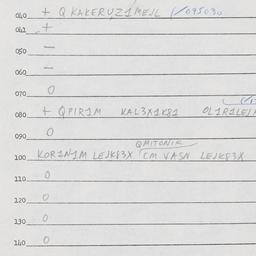 040 + QKAKERUZ1MEJL 1/095030
042 +
050 —
060 —
070 0
080 + QPIR1M KAL3X1K81 OL1R1LEJM
090 0
QMITONIK
100 KOR1N1M LEJK83X CM VASN LEJK83X
110 0
120 0
130 0
140 0